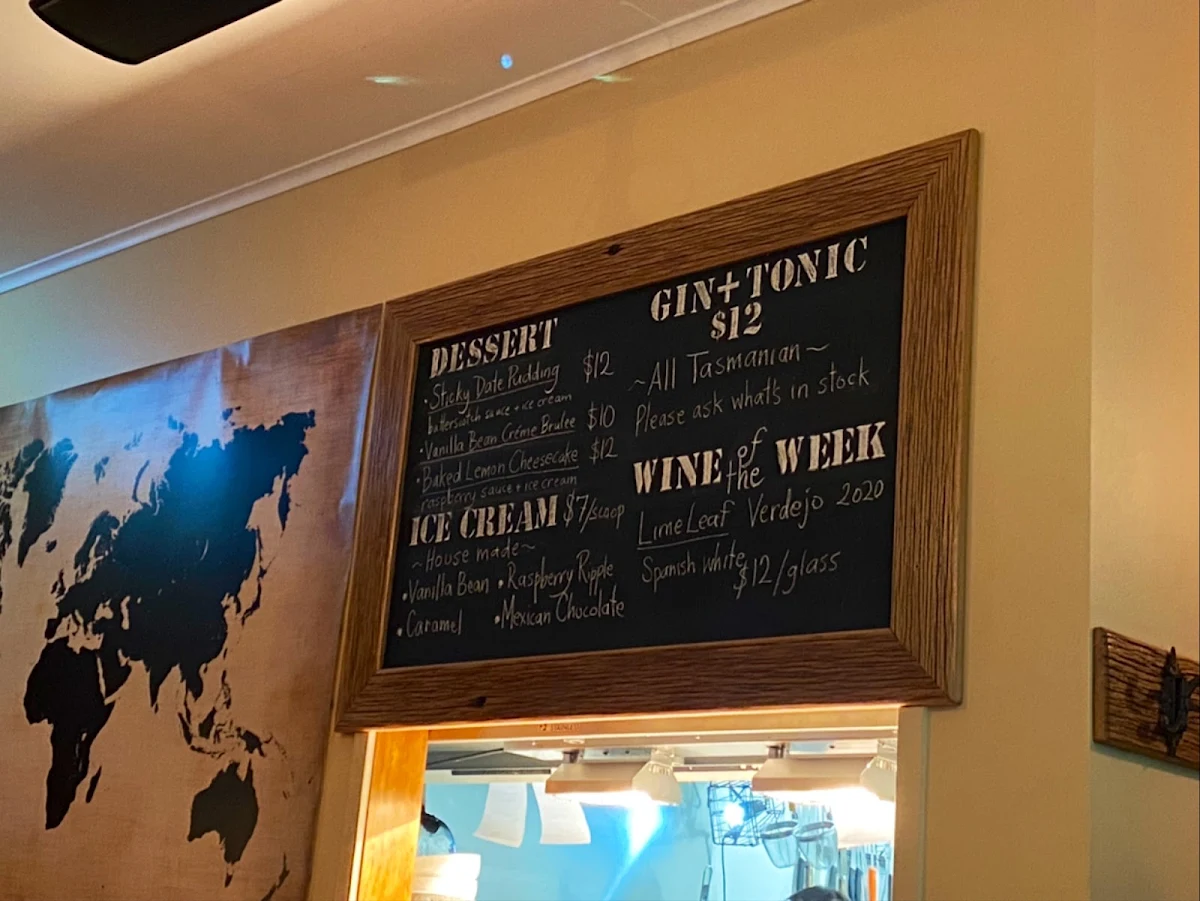 DESSERT
• Sticky Date Pudding $12
butterscotch sauce + ice cream
• Vanilla Bean Créme Brulee $10
• Baked Lemon Cheesecake $12
raspberry sauce + ice cream
ICE CREAM $7/scoop
~House made~
• Vanilla Bean • Raspberry Ripple
• Caramel • Mexican Chocolate
GIN + TONIC
$12
~All Tasmanian~
Please ask what's in stock
WINE of the WEEK
Lime Leaf Verdejo 2020
Spanish white
$12/glass